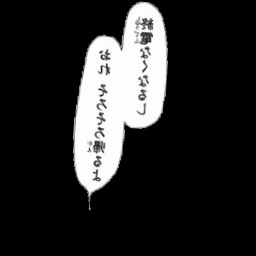 終電なくなるし
おれ そろそろ帰るよ